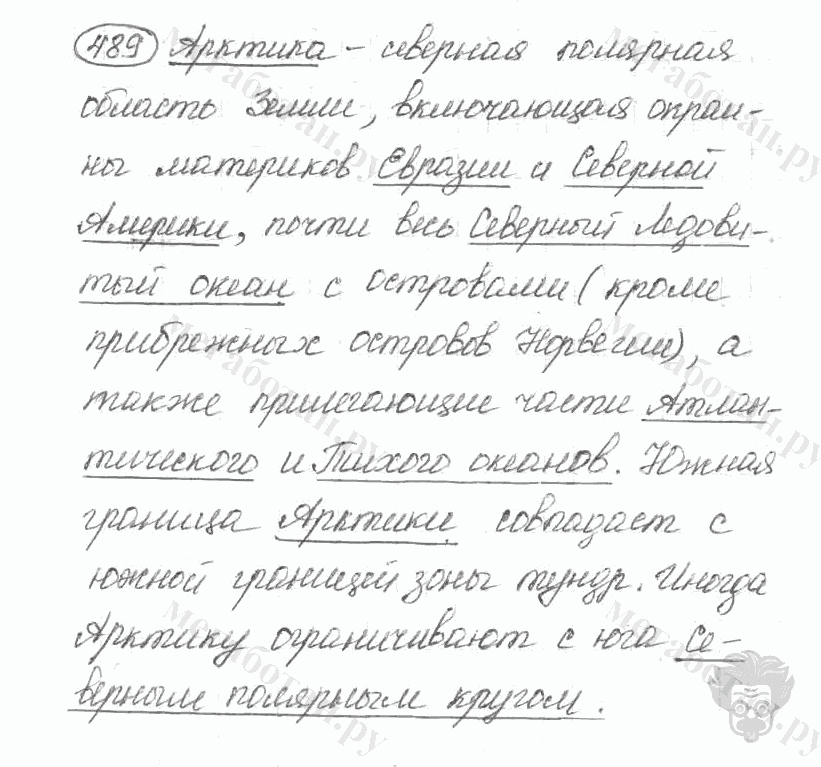 489 Арктика – северная полярная
область Земли, включающая окраи-
ны материков Евразии и Северной
Америки, почти весь Северный Ледови-
тый океан с островами (кроме
прибрежных островов Норвегии), а
также прилегающие части Атлан-
тического и Тихого океанов. Южная
граница Арктики совпадает с
южной границей зоны тундр. Иногда
Арктику ограничивают с юга Се-
верным полярным кругом.
Мегаботан.ру
Мегаботан.ру
Мегаботан.ру
Мегаботан.ру
Мегаботан.ру
Мегаботан.ру